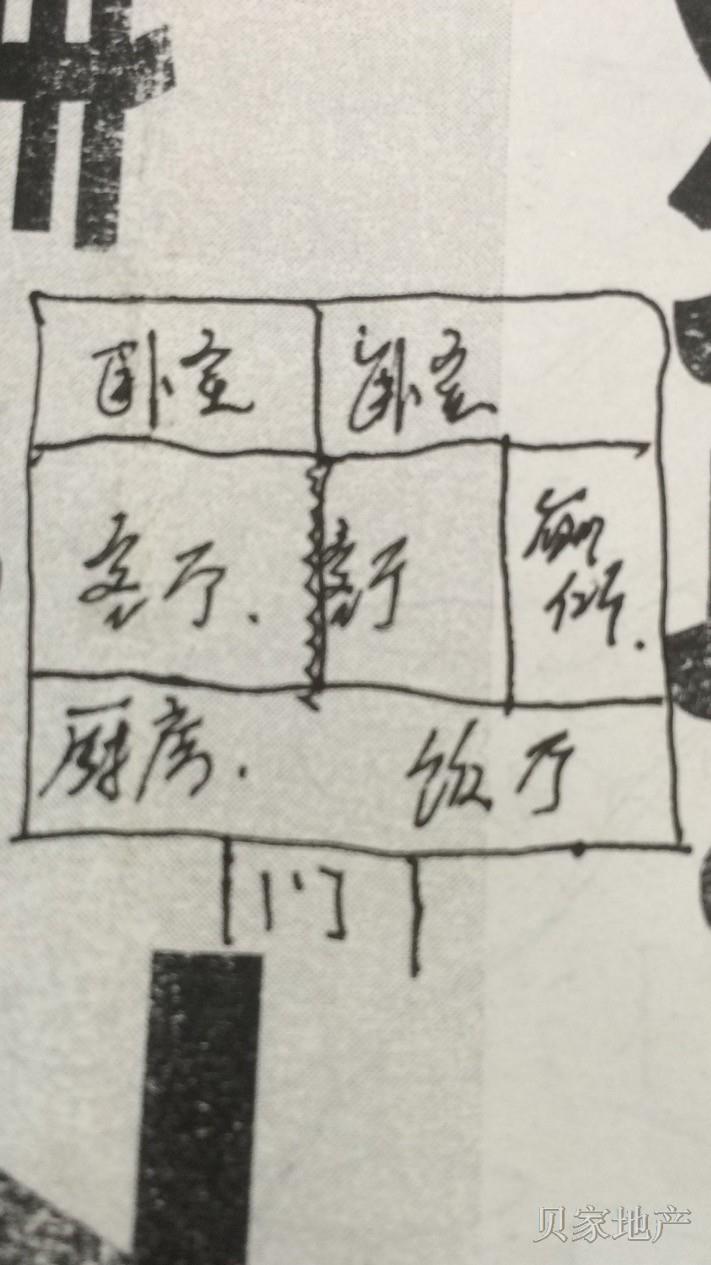 卧室 卧室
客厅. 客厅
厕所.
厨房. 饭厅
门
贝家地产